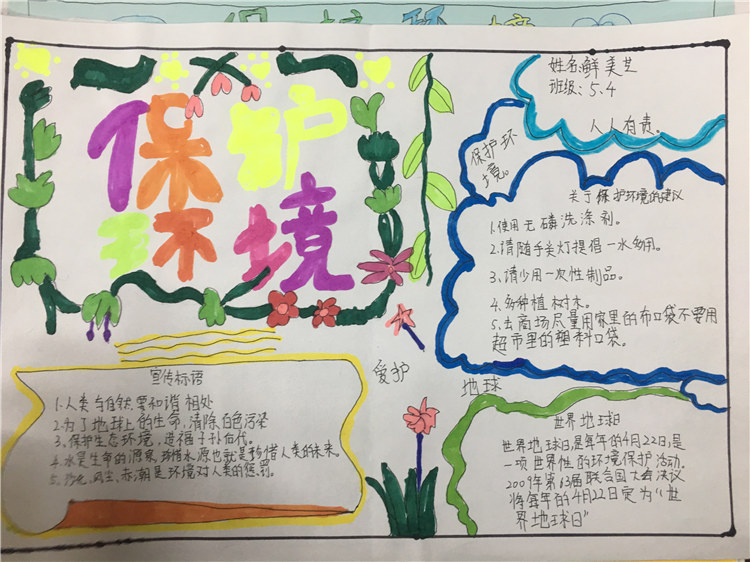 保护环境
保护
环境
姓名:鲜美芝
班级:5.4
保护环
境。
人人有责。
关于保护环境的建议
1.使用无磷洗涤剂。
2.请随手关灯提倡一水多用。
3.请少用一次性制品。
4.多种植树木。
5.去商场尽量用家里的布口袋不要用
超市里的塑料口袋。
宣传标语
1.人类与自然要和谐相处
2.为了地球上的生命,清除白色污染
3.保护生态环境,造福子孙后代。
4.水是生命的源泉,珍惜水源也就是珍惜人类的未来。
5.风尘,赤潮是环境对人类的惩罚。
爱护
地球
世界地球日
世界地球日,是每年的4月22日,是
一项世界性的环境保护活动.
2009年第63届联合国大会决议
将每年的4月22日定为“世
界地球日”